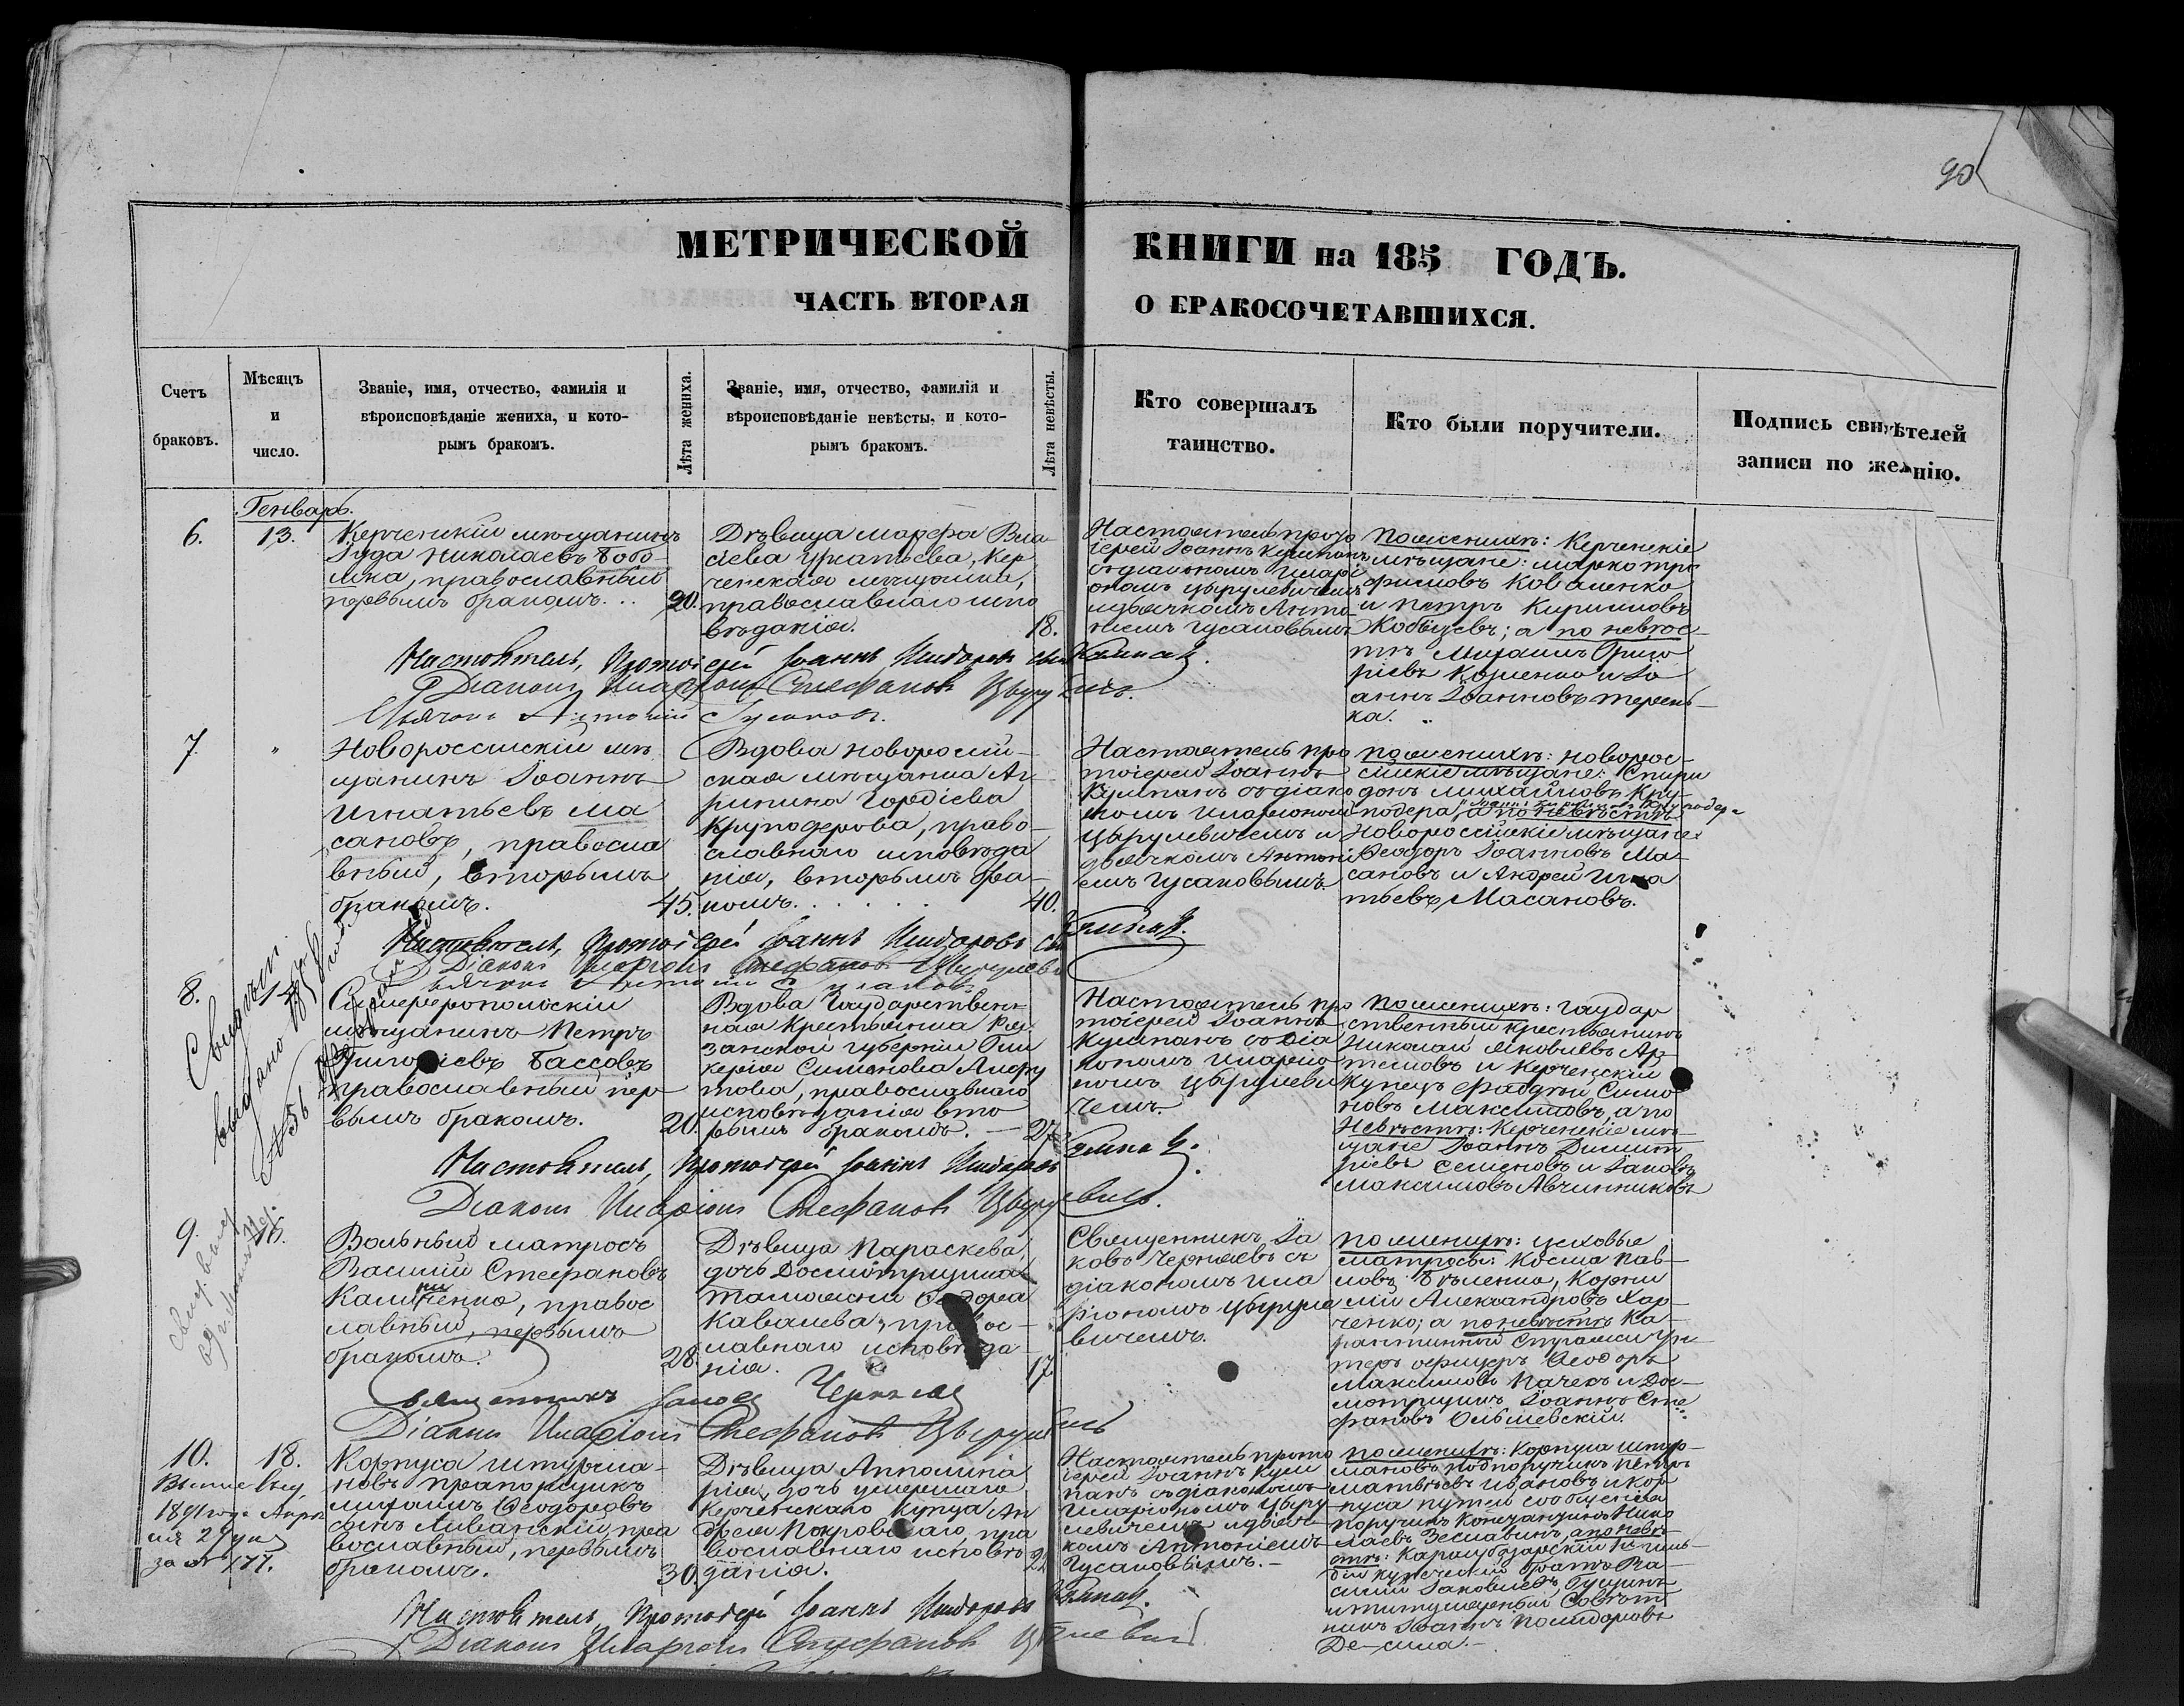 90
МЕТРИЧЕСКОЙ КНИГИ на 185 ГОДЪ.
ЧАСТЬ ВТОРАЯ О БРАКОСОЧЕТАВШИХСЯ.
Счетъ браковъ.
Мѣсяцъ и число.
Званіе, имя, отчество, фамилія и
вѣроисповѣданіе жениха, и кото-
рымъ бракомъ.
Лѣта жениха.
Званіе, имя, отчество, фамилія и
вѣроисповѣданіе невѣсты, и кото-
рымъ бракомъ.
Лѣта невѣсты.
Кто совершалъ
таинство.
Кто были поручители.
Подпись свидѣтелей
записи по желанію.
Генварь.
6.
13.
Керченскій мѣщанинъ
Іуда Николаевъ Бобо-
шка, православный
первымъ бракомъ...
20.
Дѣвица Марфа Вла-
сіева Игнатьева, Кер
ченская мѣщанка,
православнаго испо
вѣданія.
18.
Настоятель прото
іерей Іоаннъ Кушпанъ
съ діакономъ Иларі
ономъ Цырулевичемъ
и дьячкомъ Анто-
ніемъ Гусаковымъ
По женихѣ: Керченскіе
мѣщане: Марко Тро
фимовъ Коваленко
и Петръ Кирилловъ
Кобызевъ; а по невѣс-
тѣ Михаилъ Григо
ріевъ Козленко и Іо
аннъ Іоанновъ Терень-
ка.
Настоятель, Протоіерей Іоаннъ Исидоровъ
Діаконъ Иларіонъ Стефановъ
Дьячокъ Антоній Гусаковъ.
7.
"
Новороссійскій мѣ
щанинъ Іоаннъ
Игнатьевъ Ма
сановъ, правосла
вный, вторымъ
бракомъ.
45.
Вдова Новоросій-
ская мѣщанка Аг-
рипина Гордіева
Круподерова, право-
славнаго исповѣда
нія, вторымъ бра-
комъ.
40.
Настоятель про
тоіерей Іоаннъ
Кушпанъ съ діако
номъ Иларіономъ
Цырулевичемъ и
дьячкомъ Антоні
емъ Гусаковымъ.
По женихѣ: Новорос-
сійскіе мѣщане: Спири
донъ Михайловъ Кру-
подера, а по невѣстѣ
Новороссійскіе мѣщане:
Ѳеодоръ Іоанновъ Ма-
сановъ и Андрей Игна
тьевъ Масановъ.
Настоятель, Протоіерей Іоаннъ Исидоровъ
Діаконъ Иларіонъ Стефановъ
8.
выдано
№ 56
Симферопольскій
мѣщанинъ Петръ
Григоріевъ Бассовъ
православный пер
вымъ бракомъ.
20.
Вдова Государствен-
ная Крестьянка Ря
занской губерніи Гли
керія Симонова
православнаго
исповѣданія вто
рымъ бракомъ.
27.
Настоятель про
тоіерей Іоаннъ
Кушпанъ съ діа
кономъ Иларіо
номъ Цырулеви
чемъ.
По женихѣ: Государ
ственный крестьянинъ
Николай Яковлевъ Ар-
темовъ и Керченскій
Купецъ Фаддей Симо
новъ Максимовъ, а по
невѣстѣ: Керченскіе мѣ-
щане Іоаннъ Димит
ріевъ Семеновъ и Іаковъ
Максимовъ Авчинниковъ
Настоятель, Протоіерей Іоаннъ Исидоровъ
Діаконъ Иларіонъ Стефановъ
9.
Вольный матросъ
Василій Стефановъ
Калиниченко, правос
лавный, первымъ
бракомъ.
28.
Дѣвица Параскева,
дочь Досмотрщика
Таможни Ѳеодора
Кавалева, правос-
лавнаго исповѣда
нія.
17
Священникъ Іа
ковъ Чернявъ съ
діакономъ Ила
ріономъ Цыруле
вичемъ.
По женихѣ: Цеховые
матросы: Косма Пав-
ловъ Бѣленко, Корни
лій Александровъ Хар-
ченко; а по невѣстѣ Ка-
рантинной Стражи Ун-
теръ офицеръ Ѳеодоръ
Максимовъ Пачекъ и Дос-
мотрщикъ Іоаннъ Сте
фановъ Ольшевскій.
Священникъ Іаковъ
Діаконъ Иларіонъ Стефановъ
10.
18.
1891 года Апрѣ
ля 2 дня
за № 177.
Корпуса штурма-
новъ прапорщикъ
Михаилъ Ѳеодоровъ
сынъ Ливанскій, пра
вославный, первымъ
бракомъ.
30.
Дѣвица Апполина
рія, дочь умершаго
Керченскаго Купца Ан
дрея Покровскаго, пра
вославнаго исповѣ
данія.
21
Настоятель прото
іерей Іоаннъ Куш
панъ съ діакономъ
Иларіономъ Цыру
левичемъ и дьяч-
комъ Антоніемъ
Гусаковымъ.-
По женихѣ: Корпуса Штур-
мановъ подпоручикъ Петръ
Матвѣевъ Ивановъ и Кор
пуса путей сообщенія
поручикъ Константинъ Нико
лаевъ Зеславинъ, а по невѣ-
стѣ: Карасубазарскій
купеческій братъ Ва-
силій Іаковлевъ Гущинъ
и титулярный Совѣт
никъ Іоаннъ Полидоровъ
Де-сила.-
Настоятель, Протоіерей Іоаннъ Исидоровъ
Діаконъ Иларіонъ Стефановъ